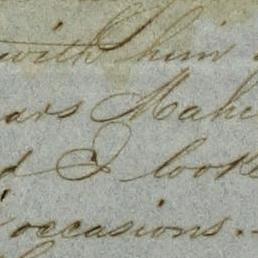 with him
ars Mahe
d I looke
occasions.